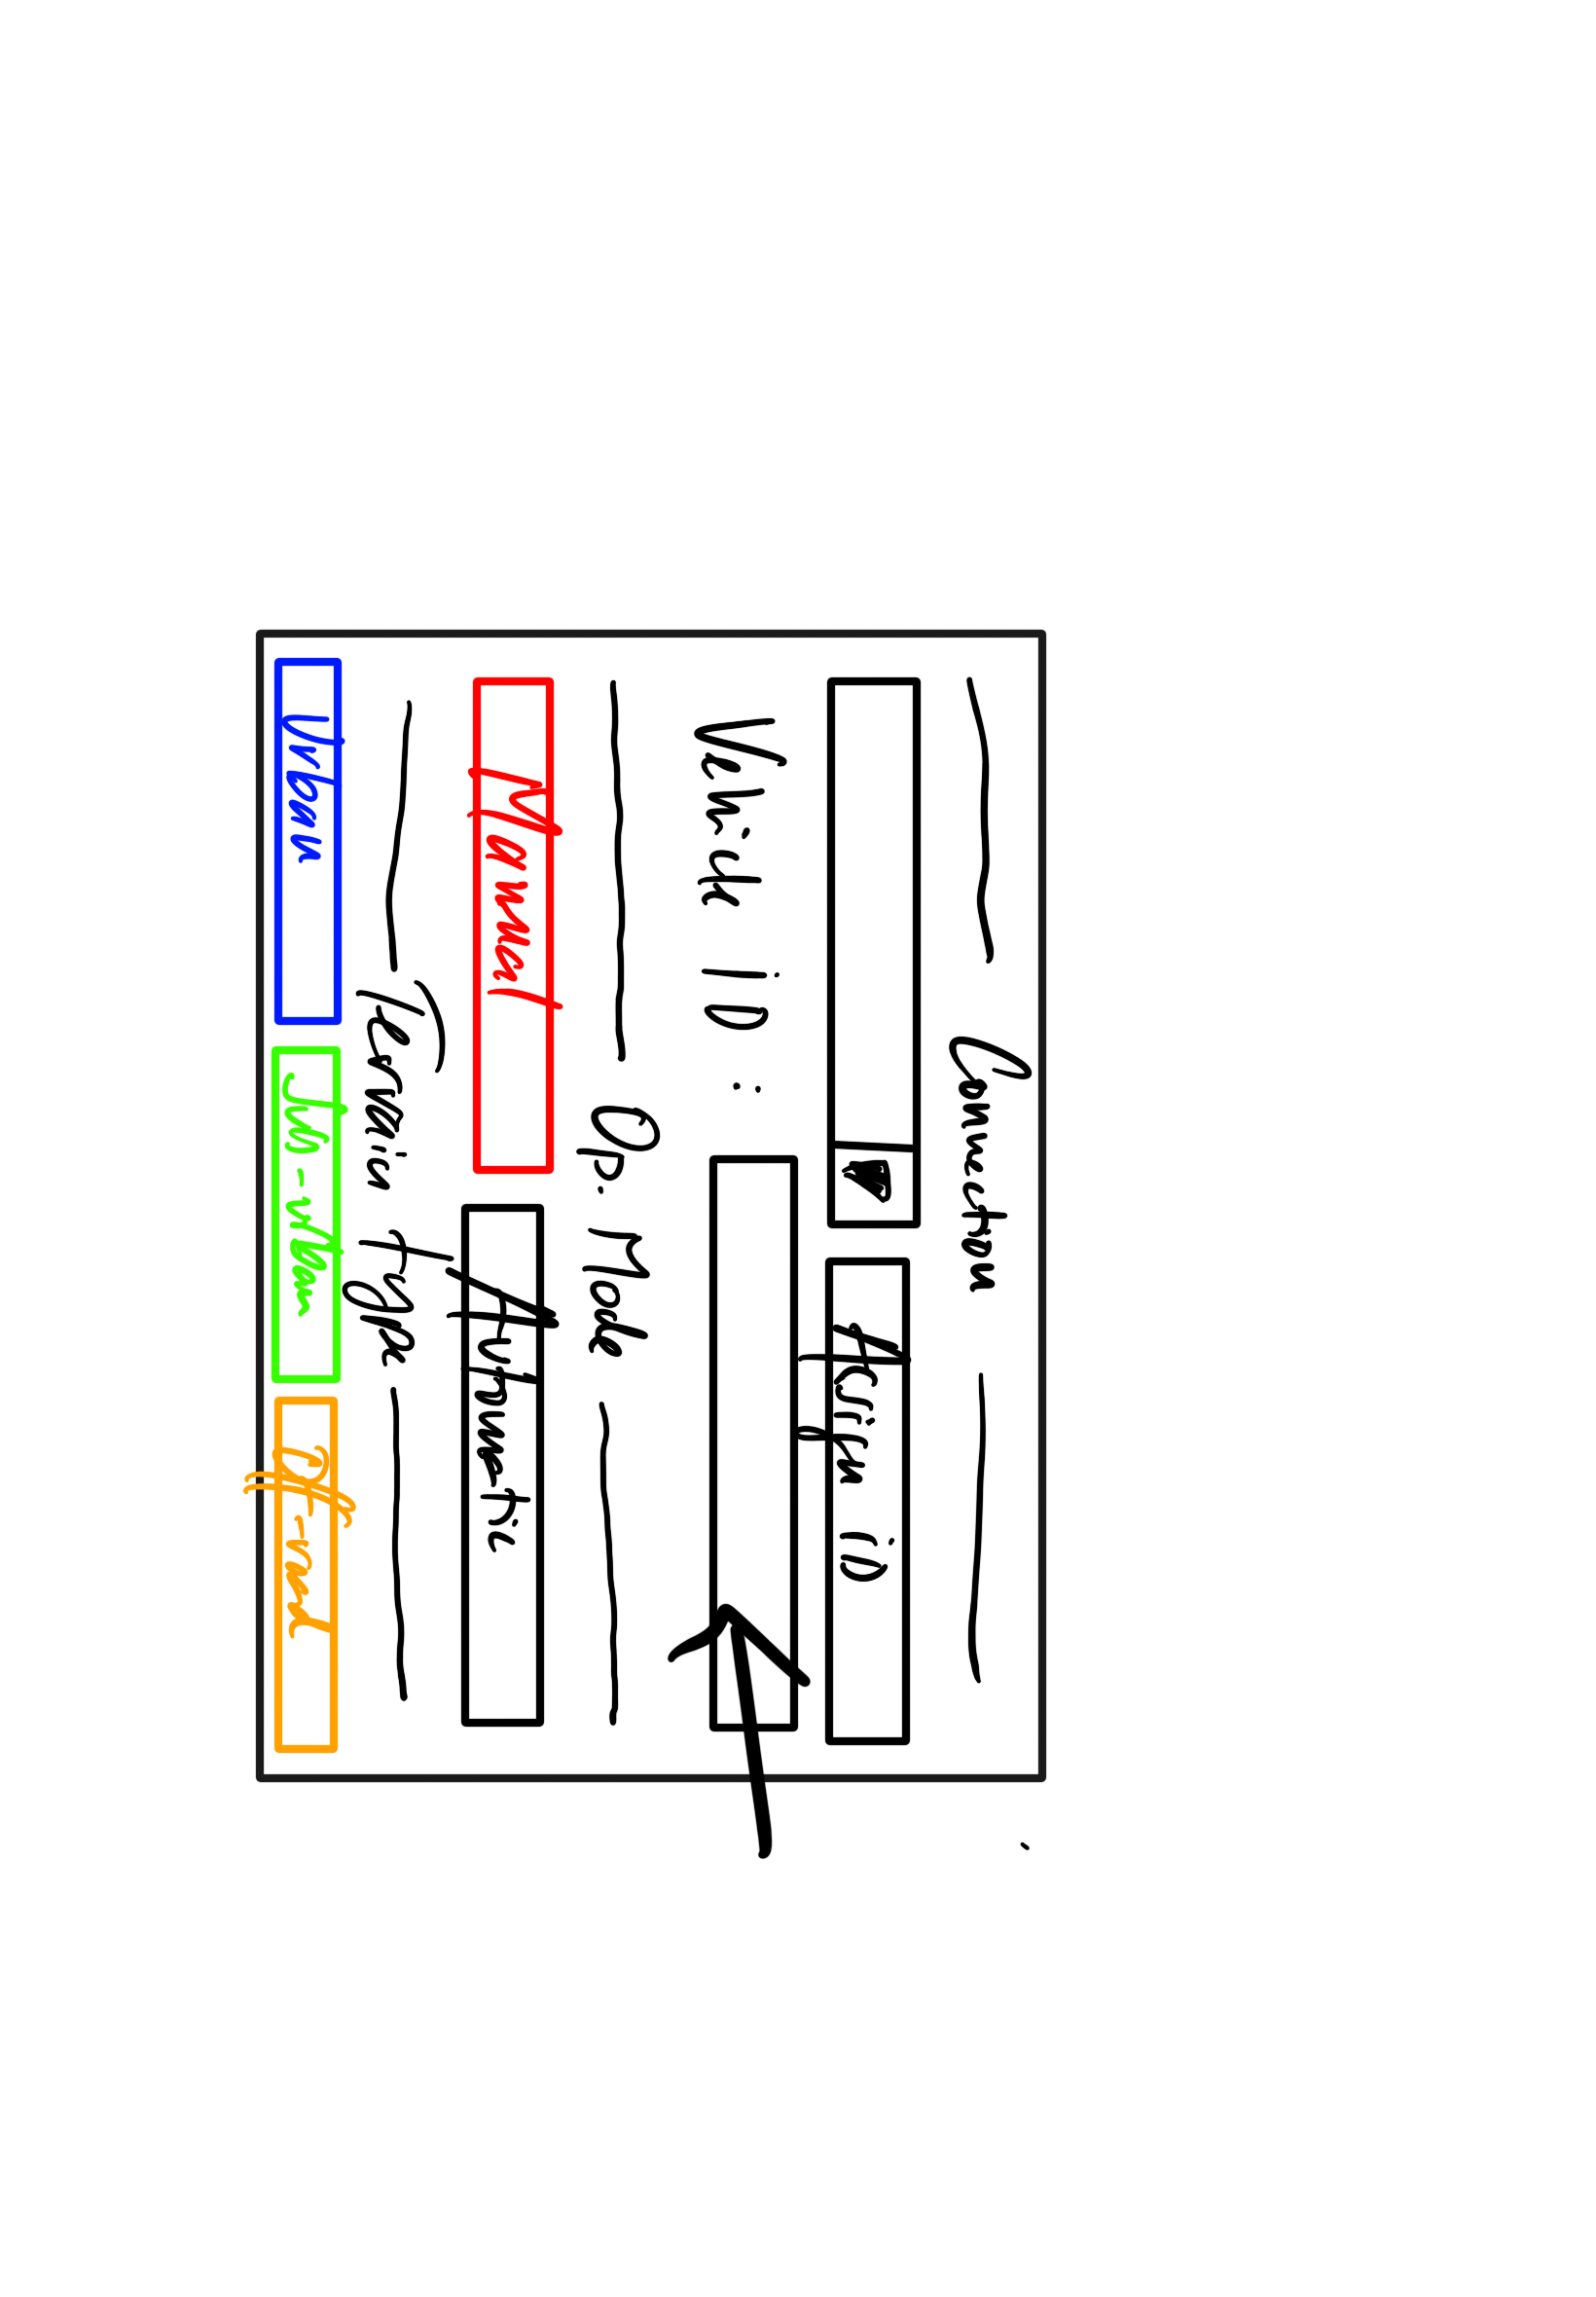 Connection
Assign iD
Vehicle ID :
Op. Mode
Manual Automatic
Terrain type
Urban Sub-urban Off-road